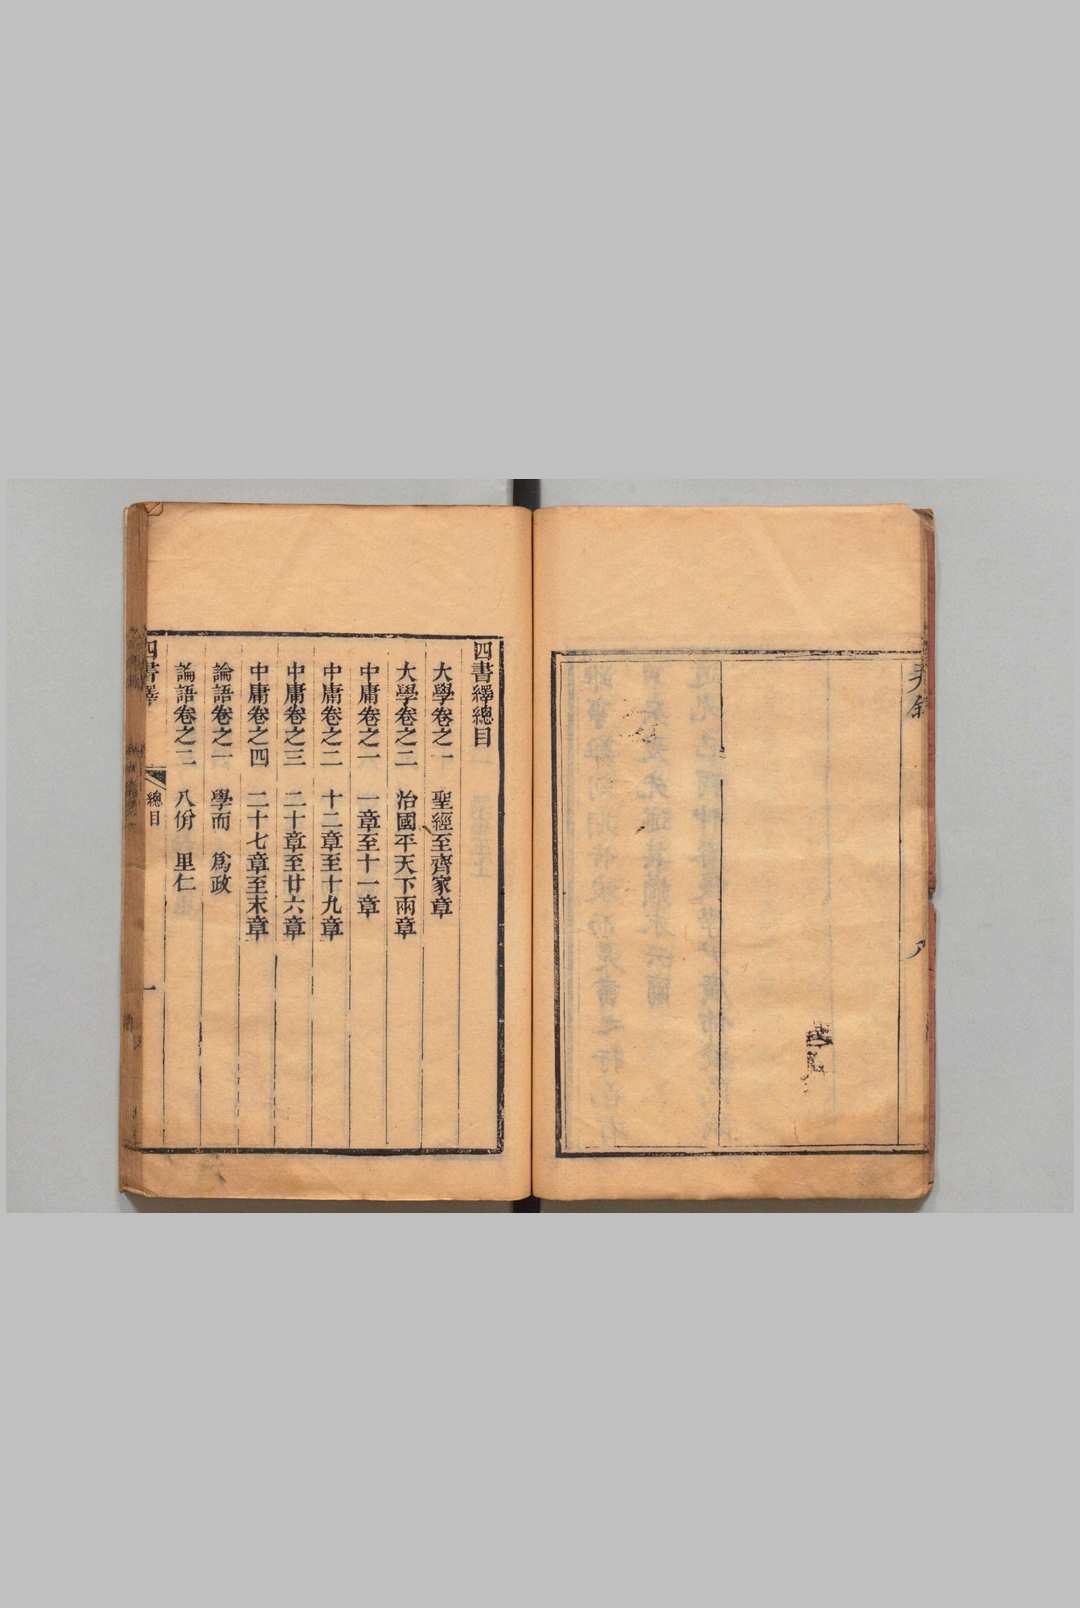 四書繹總目
大學卷之一 聖經至齊家章
大學卷之二 治國平天下兩章
中庸卷之一 一章至十一章
中庸卷之二 十二章至十九章
中庸卷之三 二十章至廿六章
中庸卷之四 二十七章至末章
論語卷之一 學而 爲政
論語卷之二 八佾 里仁
四書繹 總目 一